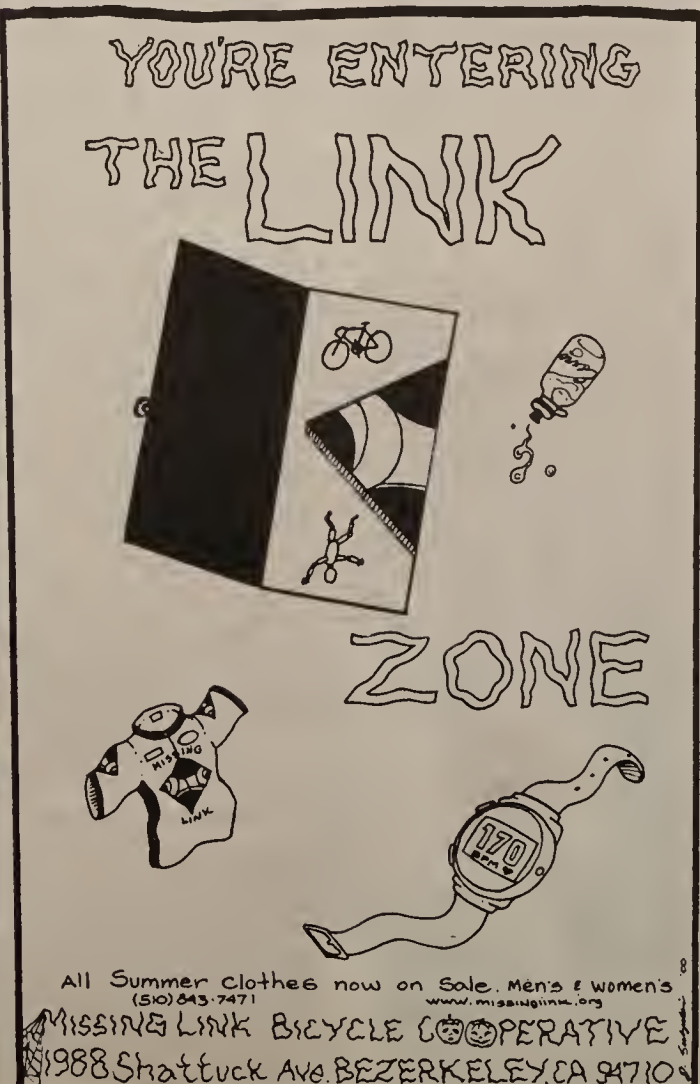 YOU'RE ENTERING
THE LINK
ZONE
MISSING
LINK
170
BPM
All Summer Clothes now on Sale. Men's & Women's
(510) 843-7471
www.missinglink.org
MISSING LINK BICYCLE COOPERATIVE
1988 Shattuck Ave. BEZERKELEY CA 94710
'00